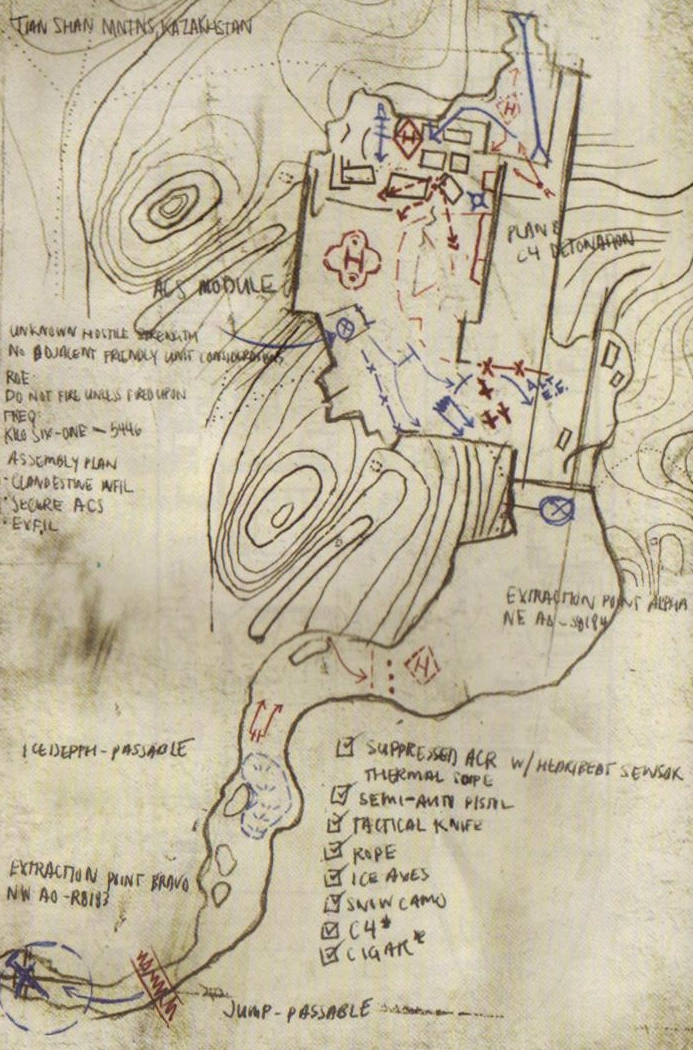 TIAN SHAN MNTNS, KAZAKHSTAN
H
H
PLAN B
C4 DETONATION
ACS MODULE
UNKNOWN HOSTILE STRENGTH
NO ADJACENT FRIENDLY UNIT CONSIDERATIONS
ROE:
DO NOT FIRE UNLESS FIRED UPON
FREQ:
KILO SIX-ONE - 5446
ASSEMBLY PLAN
· CLANDESTINE INFIL
· SECURE ACS
· EXFIL
H
ALT
E.E.
EXTRACTION POINT ALPHA
NE AO -
H
ICE DEPTH - PASSABLE
SUPPRESSED ACR W/ HEARTBEAT SENSOR
THERMAL SCOPE
SEMI-AUTO PISTOL
TACTICAL KNIFE
ROPE
ICE AXES
SNOW CAMO
C4*
CIGAR*
EXTRACTION POINT BRAVO
NW AO - R8183
JUMP - PASSABLE